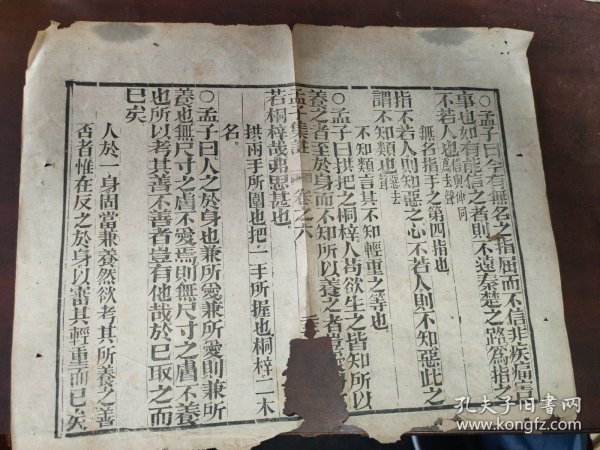 ○孟子曰今有無名之指屈而不信非疾痛害
事也如有能信之者則不遠秦楚之路為指之
不若人也信與伸同為去聲
無名指手之第四指也
指不若人則知惡之心不若人則不知惡此之
謂不知類也惡去聲
不知類言其不知輕重之等也
○孟子曰拱把之桐梓人苟欲生之皆知所以
養之者至於身而不知所以養之者豈
孟子集註 卷之六
若桐梓哉弗思甚也
拱兩手所圍也把一手所握也桐梓二木
名
○孟子曰人之於身也兼所愛兼所愛則兼所
養也無尺寸之膚不愛焉則無尺寸之膚不養
也所以考其善不善者豈有他哉於已取之而
已矣
人於一身固當兼養然欲考其所養之善
否者惟在反之於身以審其輕重而已矣
孔夫子旧書网
www.kongfz.com